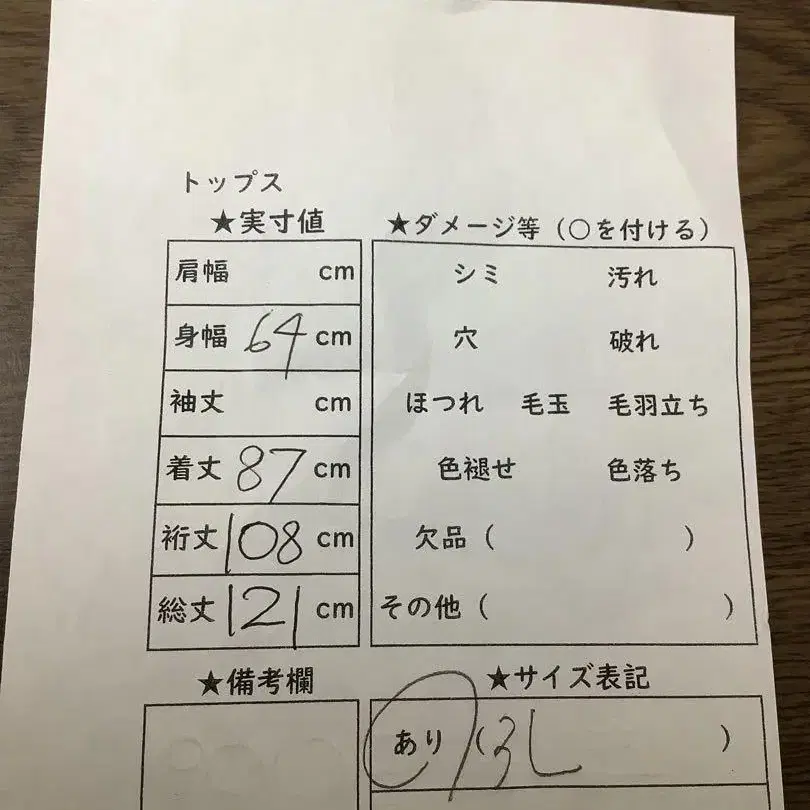 トップス
★実寸値
肩幅 cm
身幅 64 cm
袖丈 cm
着丈 87 cm
裄丈 108 cm
総丈 121 cm
★ダメージ等（○を付ける）
シミ 汚れ
穴 破れ
ほつれ 毛玉 毛羽立ち
色褪せ 色落ち
欠品（ ）
その他（ ）
★備考欄
★サイズ表記
あり（3L ）